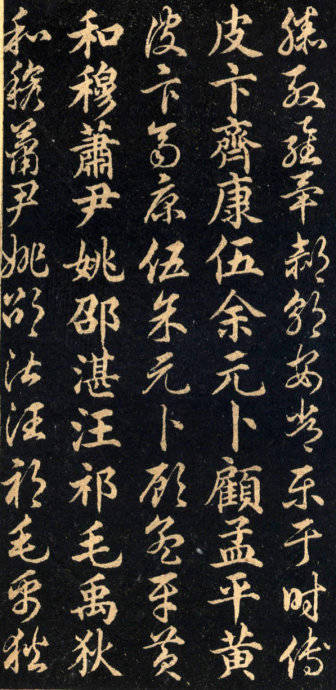 滕殷羅畢郝鄔安常樂于時傅
皮卞齊康伍余元卜顧孟平黃
皮卞齊康伍余元卜顧孟平黃
和穆蕭尹姚邵湛汪祁毛禹狄
和穆蕭尹姚邵湛汪祁毛禹狄